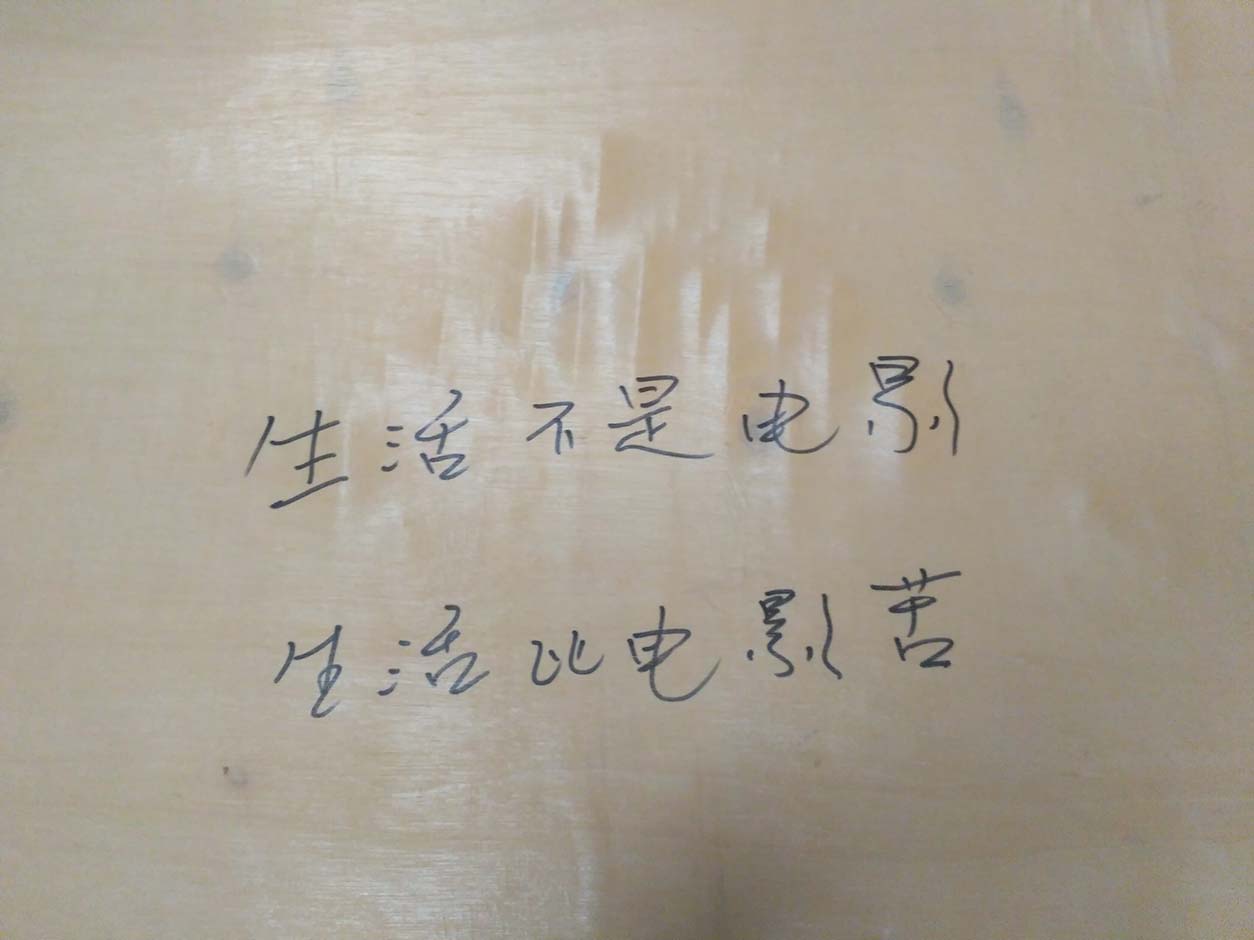 生活不是电影
生活比电影苦